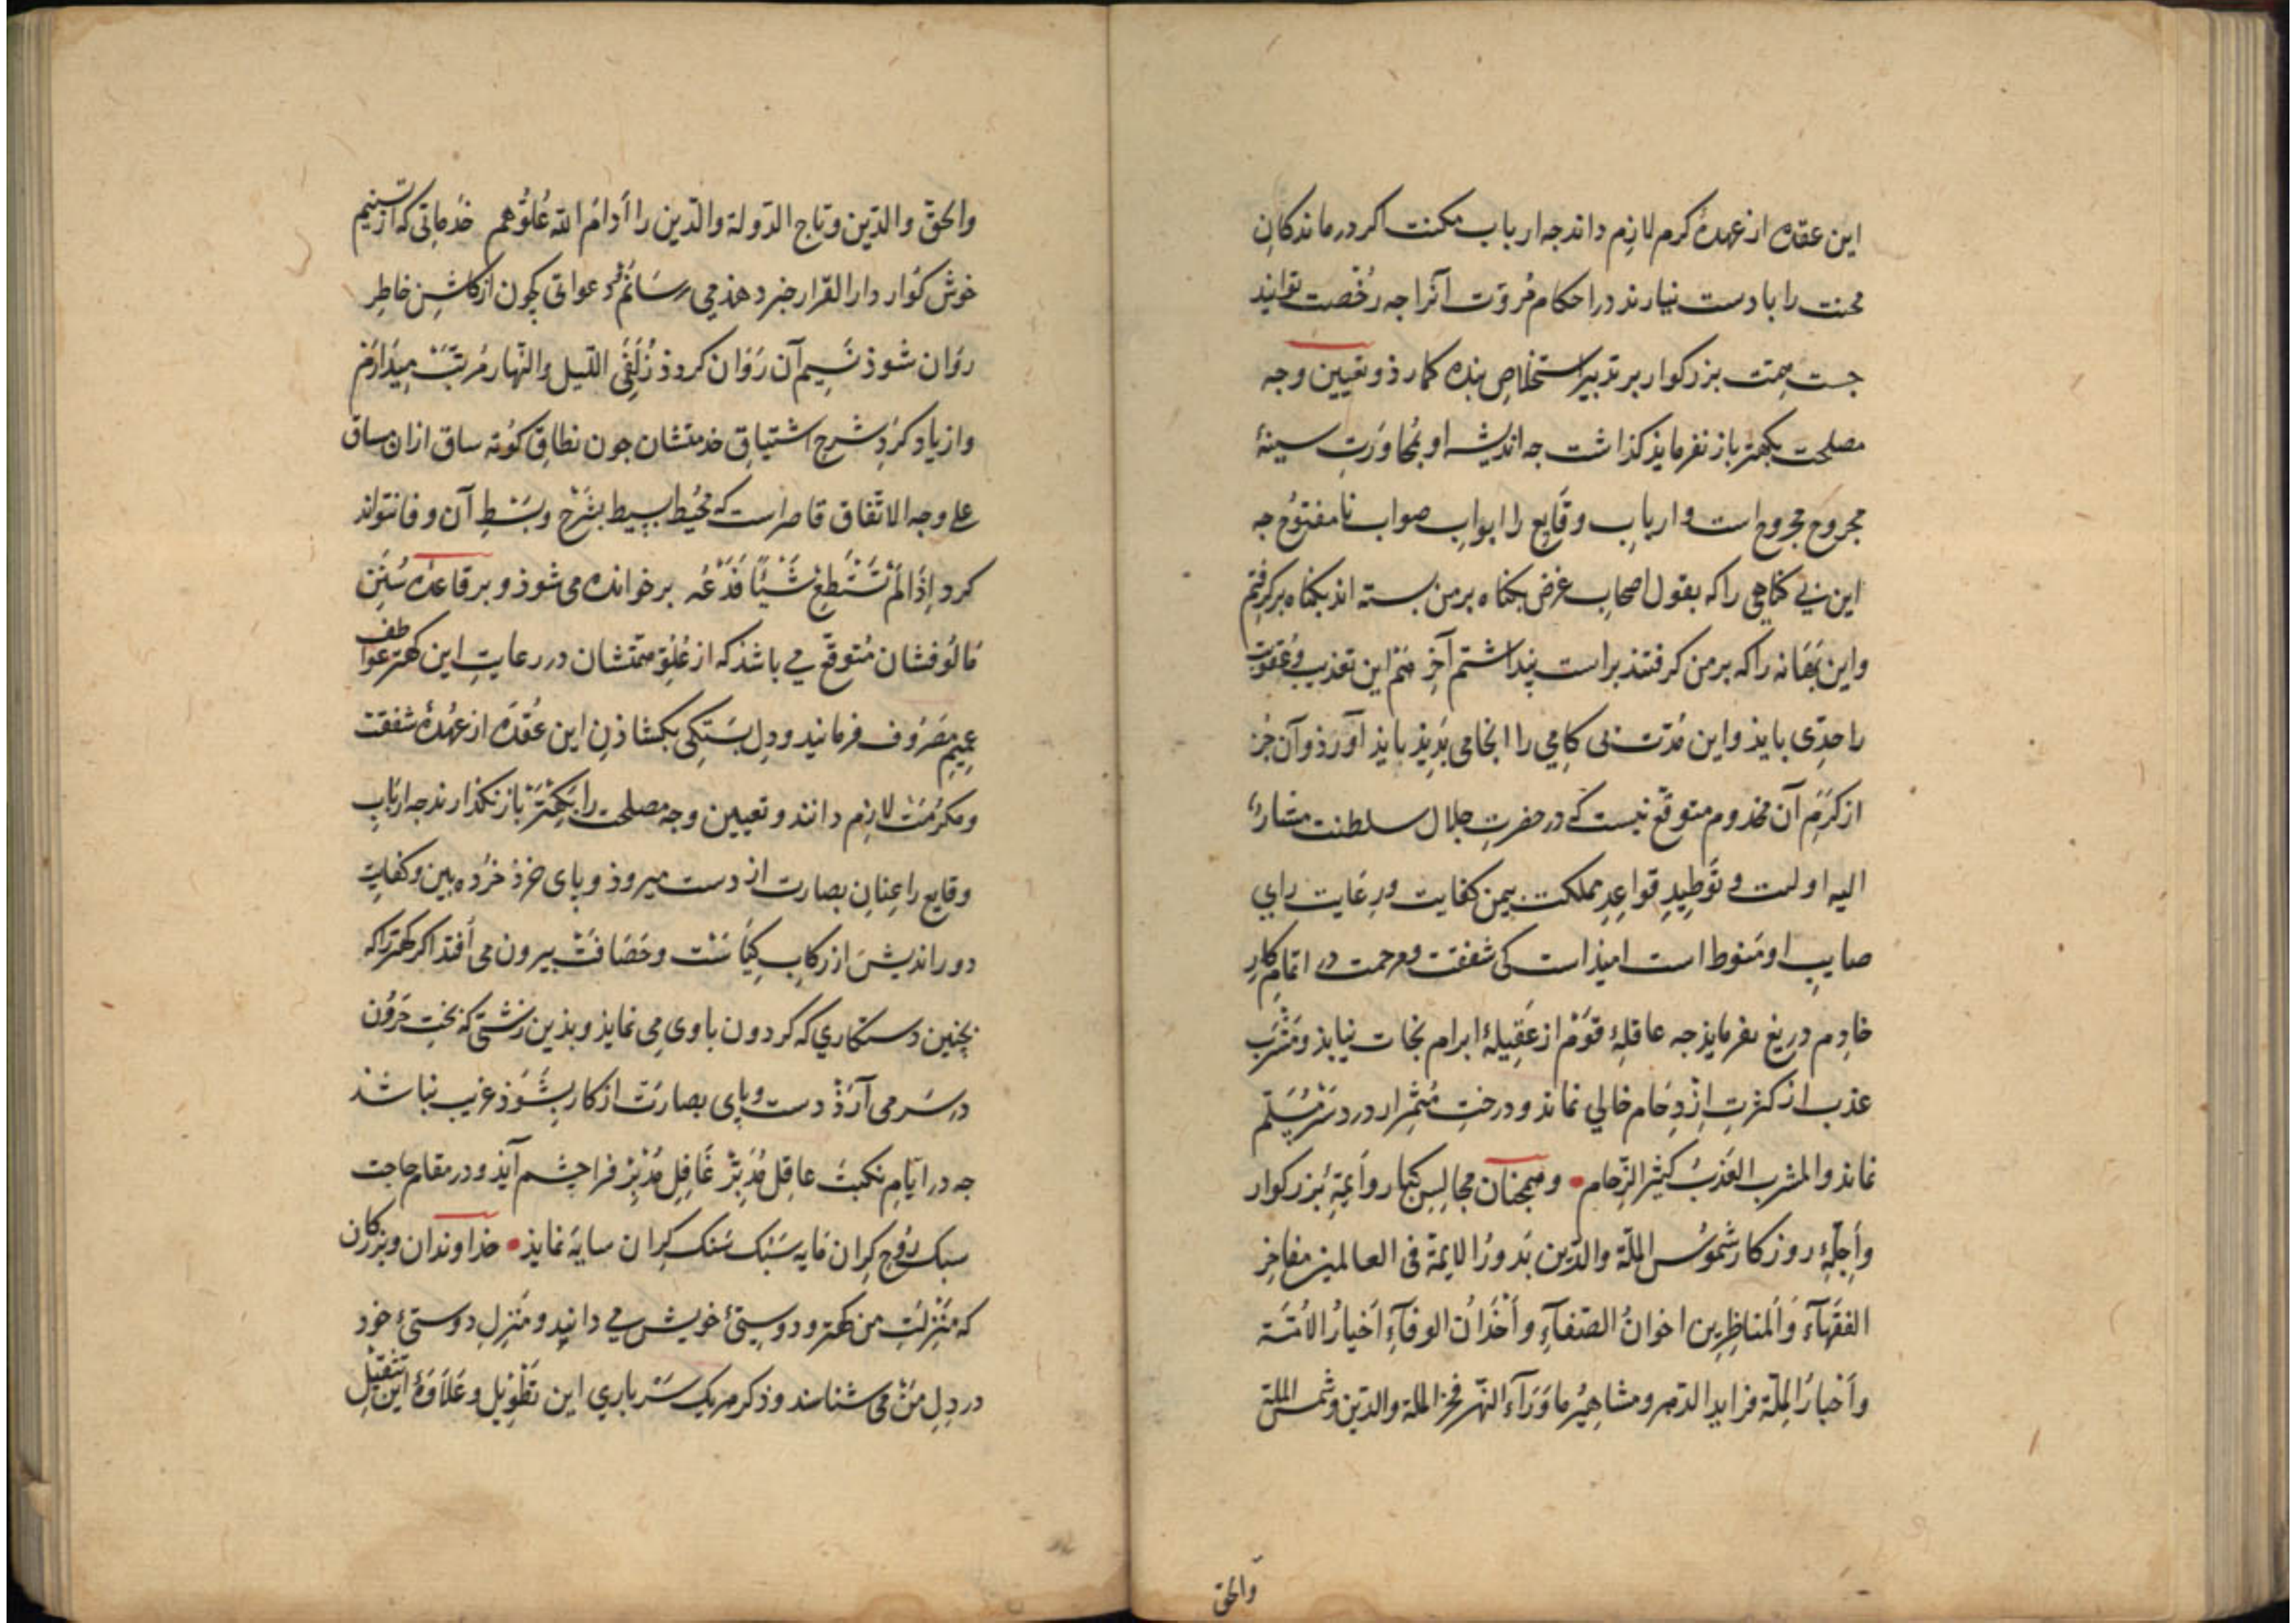 این عقده از عهدهٔ کرم لازم داند جه ارباب مکنت اکر درماندکان
محنت را با دست نیارند در احکام مروّت آنرا جه رُخصت توانند
جست همّت بزرکوار بر تدبیر استخلاصِ بنده کمارذ و تعیین وجه
مصلحت بکهتر باز نفرمایذ کذاشت جه اندیشه او بمُجاوَرتِ سینهٔ
مجروح مجروح است و اربابِ وقایع را ابوابِ صواب نامفتُوح جه
این بی کناهی را که بقول اصحابِ غرض بکناه بر من بسته اند بکناه برکرفتم
و این بَهَانه را که بر من کرفتند براست پنداشتم آخر هَم این تعذیب و عُقوبت
را حدّی بایذ و این مُدّت بی کامی را انجامی بَدیذ بایذ آورذ و آن جُز
از کَرَمِ آن مخدوم متوقّع نیست کی در حضرتِ جلال سلطنت مشارٌ
الیه اوست و تَوطِیدِ قواعِدِ مملکت بیمن کفایت و رِعَایت رای
صایبِ او مَنوط است امیذ است کی شفقت و مرحمت در اتمامِ کارِ
خادِم دریغ نفرمایذ جه عاقلهٔ قَوْم از عَقِیلهٔ ابرام نجات نیابذ و مَشْرَب
عذب از کثرتِ اِزْدِحَام خالی نماند و درختِ مُثمِر از دردسَرْ مُسَلّم
نماند والمشرب العَذبُ کثیرُ الزّحام • و همچنان مجالِسِ کبار و أَیمّهِٔ بُزرکوار
و أَجِلّهِٔ روزکار شُموسُ المِلّة والدّین بُدورُ الایمة فی العالمین مفاخِر
الفقَهآءِ وَالمناظِرِین اخوانُ الصّفآءِ و أَخْدَانُ الوفآءِ أخیارُ الأمّة
و أحبارُ المِلّة فراید الدّهر و مشاهیرُ ماوَرَآءَ النّهر فخر الملة والدّین و شمس الملة
والحق
والحقّ والدّین و تاج الدّولة والدّین را أدامَ اللّه عُلُوَّهم خدماتی که از تسنیم
خوش کوار دار القرار خبر دهذ می رسَانَمْ و دعواتی کجون از کلشنِ خاطِر
روَان شوذ نَسِیم آن رَوَان کروذ زُلَفَی اللّیل والنّهار مُرتّبْ میدارَمْ
و از یاد کرْدِ شرحِ اشتیاقِ خدمتشان جون نطاقِ کُوته ساق ازان مساق
علی وجه الاتّفاق قاصر است که محُیط بسیط بشَرْحِ و بَسْطِ آن وفا نتواند
کرد إذَا لَمْ تَسْتَطِعْ شَیْئًا فَدَعْهُ بر خوانده می شوذ و بر قاعدهٔ سُنَنِ
مَالُوفشان مُتوقّع می باشذ که از عُلُوّ همّتشان در رعایتِ این کهتر عواطف
عمیم مَصْرُوف فرمایند و دِل بستکی بکشاذنِ این عُقدَه از عُهْدهٔ شفقت
و مَکرُمَتْ لازِم دانند و تعیین وجه مصلحت را بکهتر باز نکذارند جه اربابِ
وقایع را عِنانِ بصارت از دست میروذ و بای خرذ خُرْده بین و کفایتِ
دور اندیش از رکابِ کیَاسَتْ و حَصَافَتْ بیرون می أفتذ اکر کهتر را که
بچنین دستکاری که کردون با وی می نمایذ و بذین زشتی که بختِ حَرُون
در سَر می آرَذْ دست و بای بصارَتْ از کار بشَوَذ غریب نباشذ
جه در ایّامِ نکبتْ عاقِل مُدَبِّرْ غَافِل مُدْبِرْ فرا جشم آیذ و در مقام حاجت
سبک رُوح کِران مَایه سَبْک سَنک کِران سایهَ نمایذ • خذاوندان و بزرکان
که مَنْزِلتِ من کهتر و دوستیٔ خویش می دانند و مَنزِلِ دوستیٔ خود
در دِل مَنْ می شناسند و ذکر هر یک سَرْباری این تَطْوِیل و عَلَاوَهٔ این تَثقیل